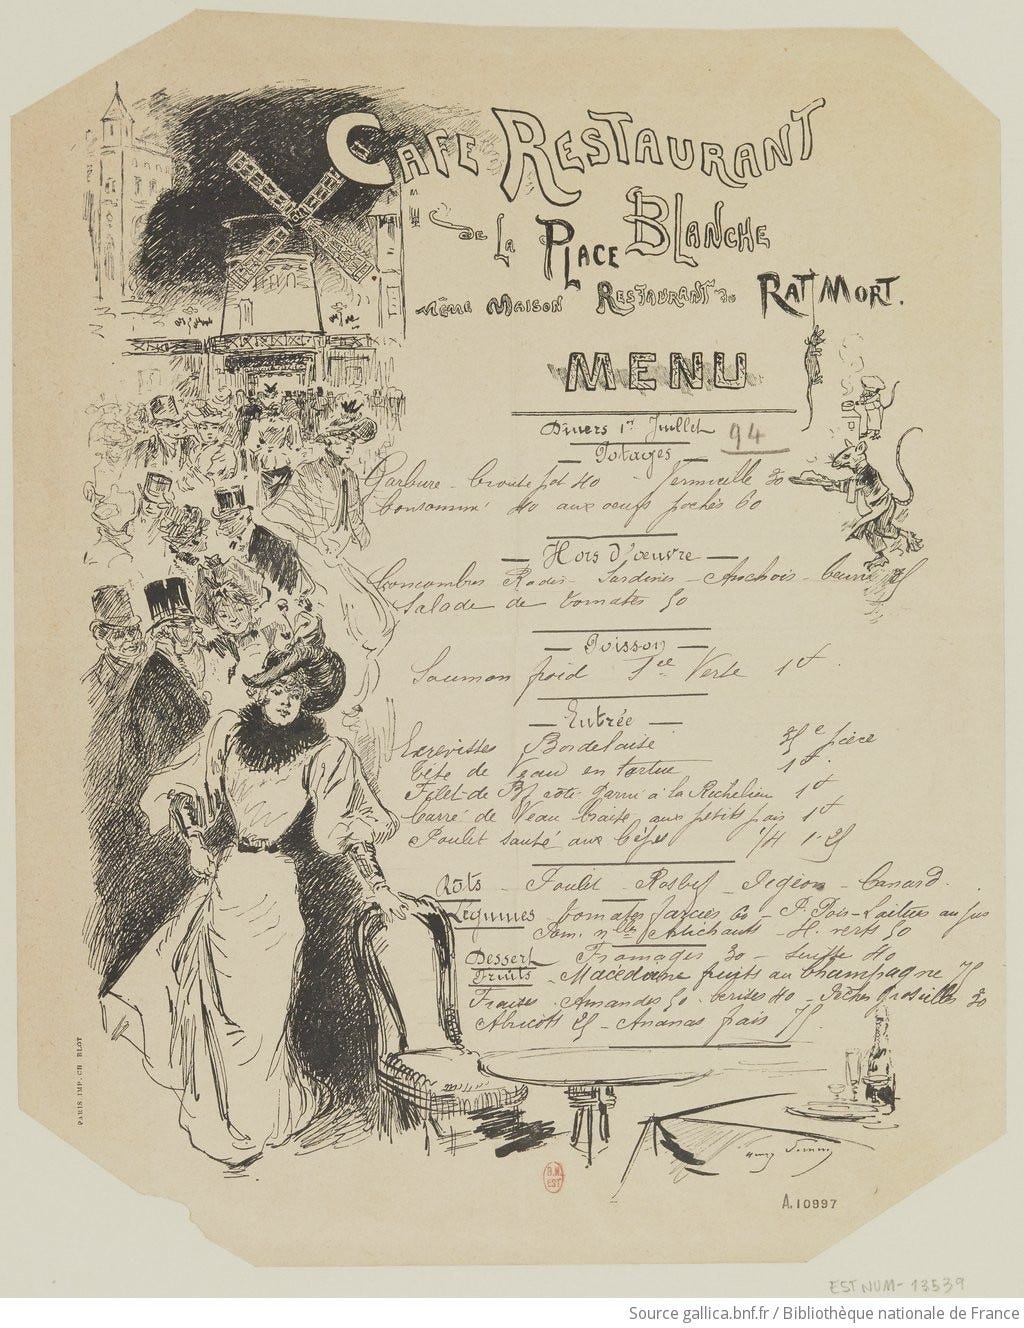 CAFE RESTAURANT
DE LA PLACE BLANCHE
MÊME MAISON RESTAURANT DU RAT MORT.
MENU
Diners 1er Juillet 94
Potages
Garbure - Croute pot 40 - Vermicelle 30
Consommé 40 aux oeufs pochés 60
Hors d'œuvre
Concombres Radis - Sardines - Anchois - beurre 25
Salade de tomates 50
Poisson
Saumon froid Sce Verte 1f
Entrée
Ecrevisses Bordelaise 25c pièce
Tête de Veau en tortue 1f
Filet de Bf côte garni à la Richelieu 1f
Carré de Veau braisé aux petits pois 1f
Poulet sauté aux Cèpes 1/4 1.25
Rôts - Poulet - Rosbif - Pigeon - Canard.
Légumes tomates farcies 60 - P. Pois - Laitues au jus
Pom. nlles Artichauts - H. verts 50
Dessert Fromages 30 - suisse 40
Fruits - Macédoine fruits au champagne 75
Fraises Amandes 50 - cerises 40 - Pêches groseilles 30
Abricots 25 - Ananas frais 75
PARIS. IMP. CH. BLOT
B.N. EST.
A.10997
EST NUM-13539
Source gallica.bnf.fr / Bibliothèque nationale de France